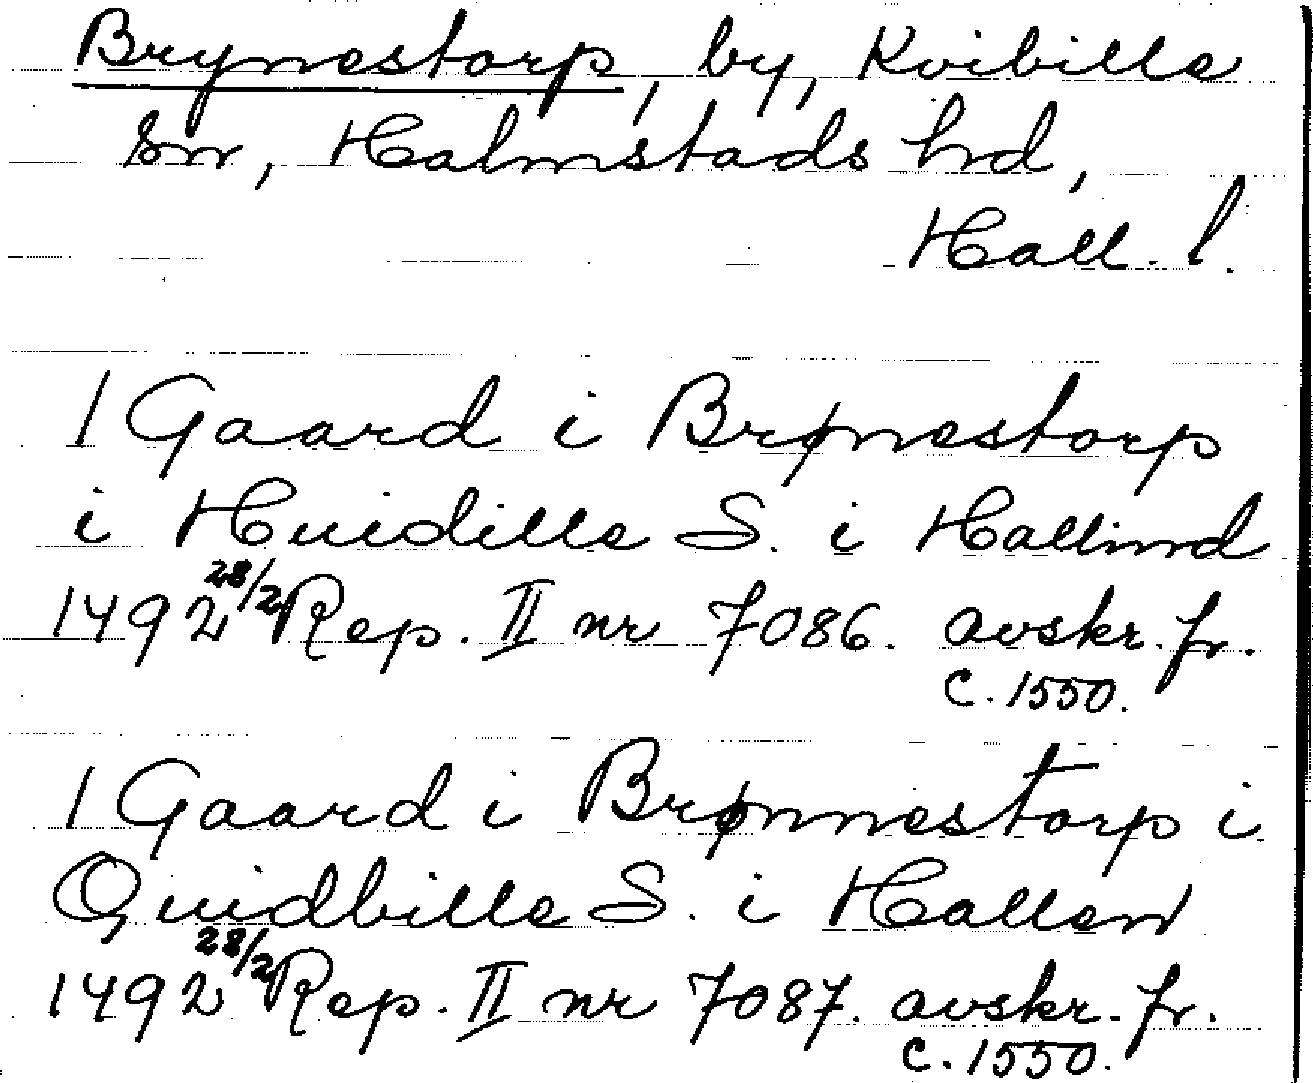 Brynestorp, by, Kvibille
sn, Halmstads hrd,
Hall. l.
1 Gaard i Brønestorp
i Huidille S. i Hallind
1492 28/2 Rep. II nr 7086. avskr. fr.
c. 1550.
1 Gaard i Brønnestorp i
Quidbille S. i Hallen
1492 28/2 Rep. II nr 7087. avskr. fr.
c. 1550.